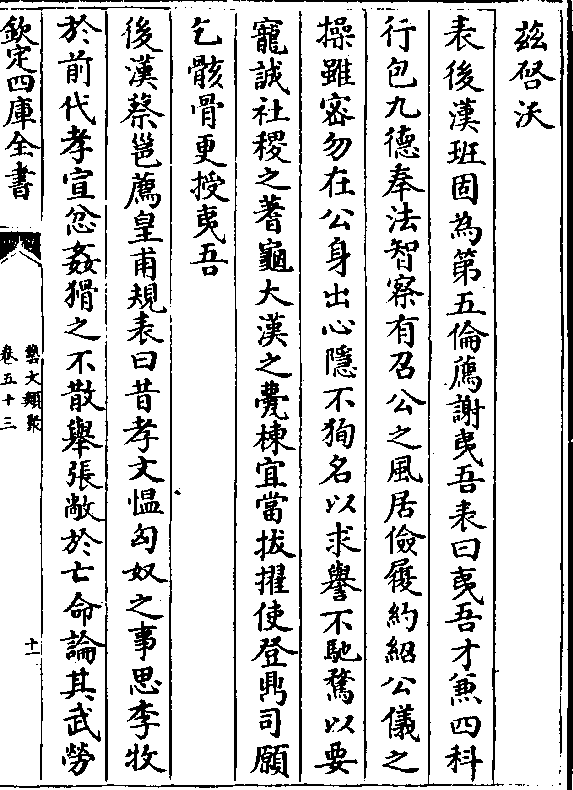 茲啓沃
表後漢班固為第五倫薦謝夷吾表曰夷吾才兼四科
行包九德奉法智察有召公之風居儉履約紹公儀之
操雖密勿在公身出心隱不狥名以求譽不馳騖以要
寵誠社稷之蓍龜大漢之甍棟宜當拔擢使登鼎司願
乞骸骨更授夷吾
後漢蔡邕薦皇甫規表曰昔孝文愠匈奴之事思李牧
於前代孝宣忿姦猾之不散舉張敞於亡命論其武勞
欽定四庫全書
藝文類聚
卷五十三
十一